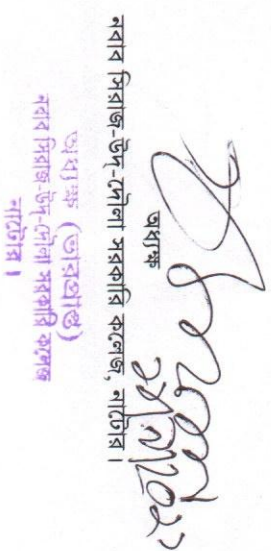 অধ্যক্ষ
নবাব সিরাজ-উদ্-দৌলা সরকারি কলেজ, নাটোর।
অধ্যক্ষ (ভারপ্রাপ্ত)
নবাব সিরাজ-উদ্-দৌলা সরকারি কলেজ
নাটোর।